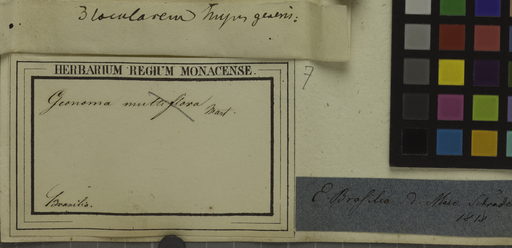 3 locularem hujus generis:
HERBARIUM REGIUM MONACENSE.
7
Geonoma multiflora
Mart.
Brasilia.
E Brasilia d. Mart.
1818